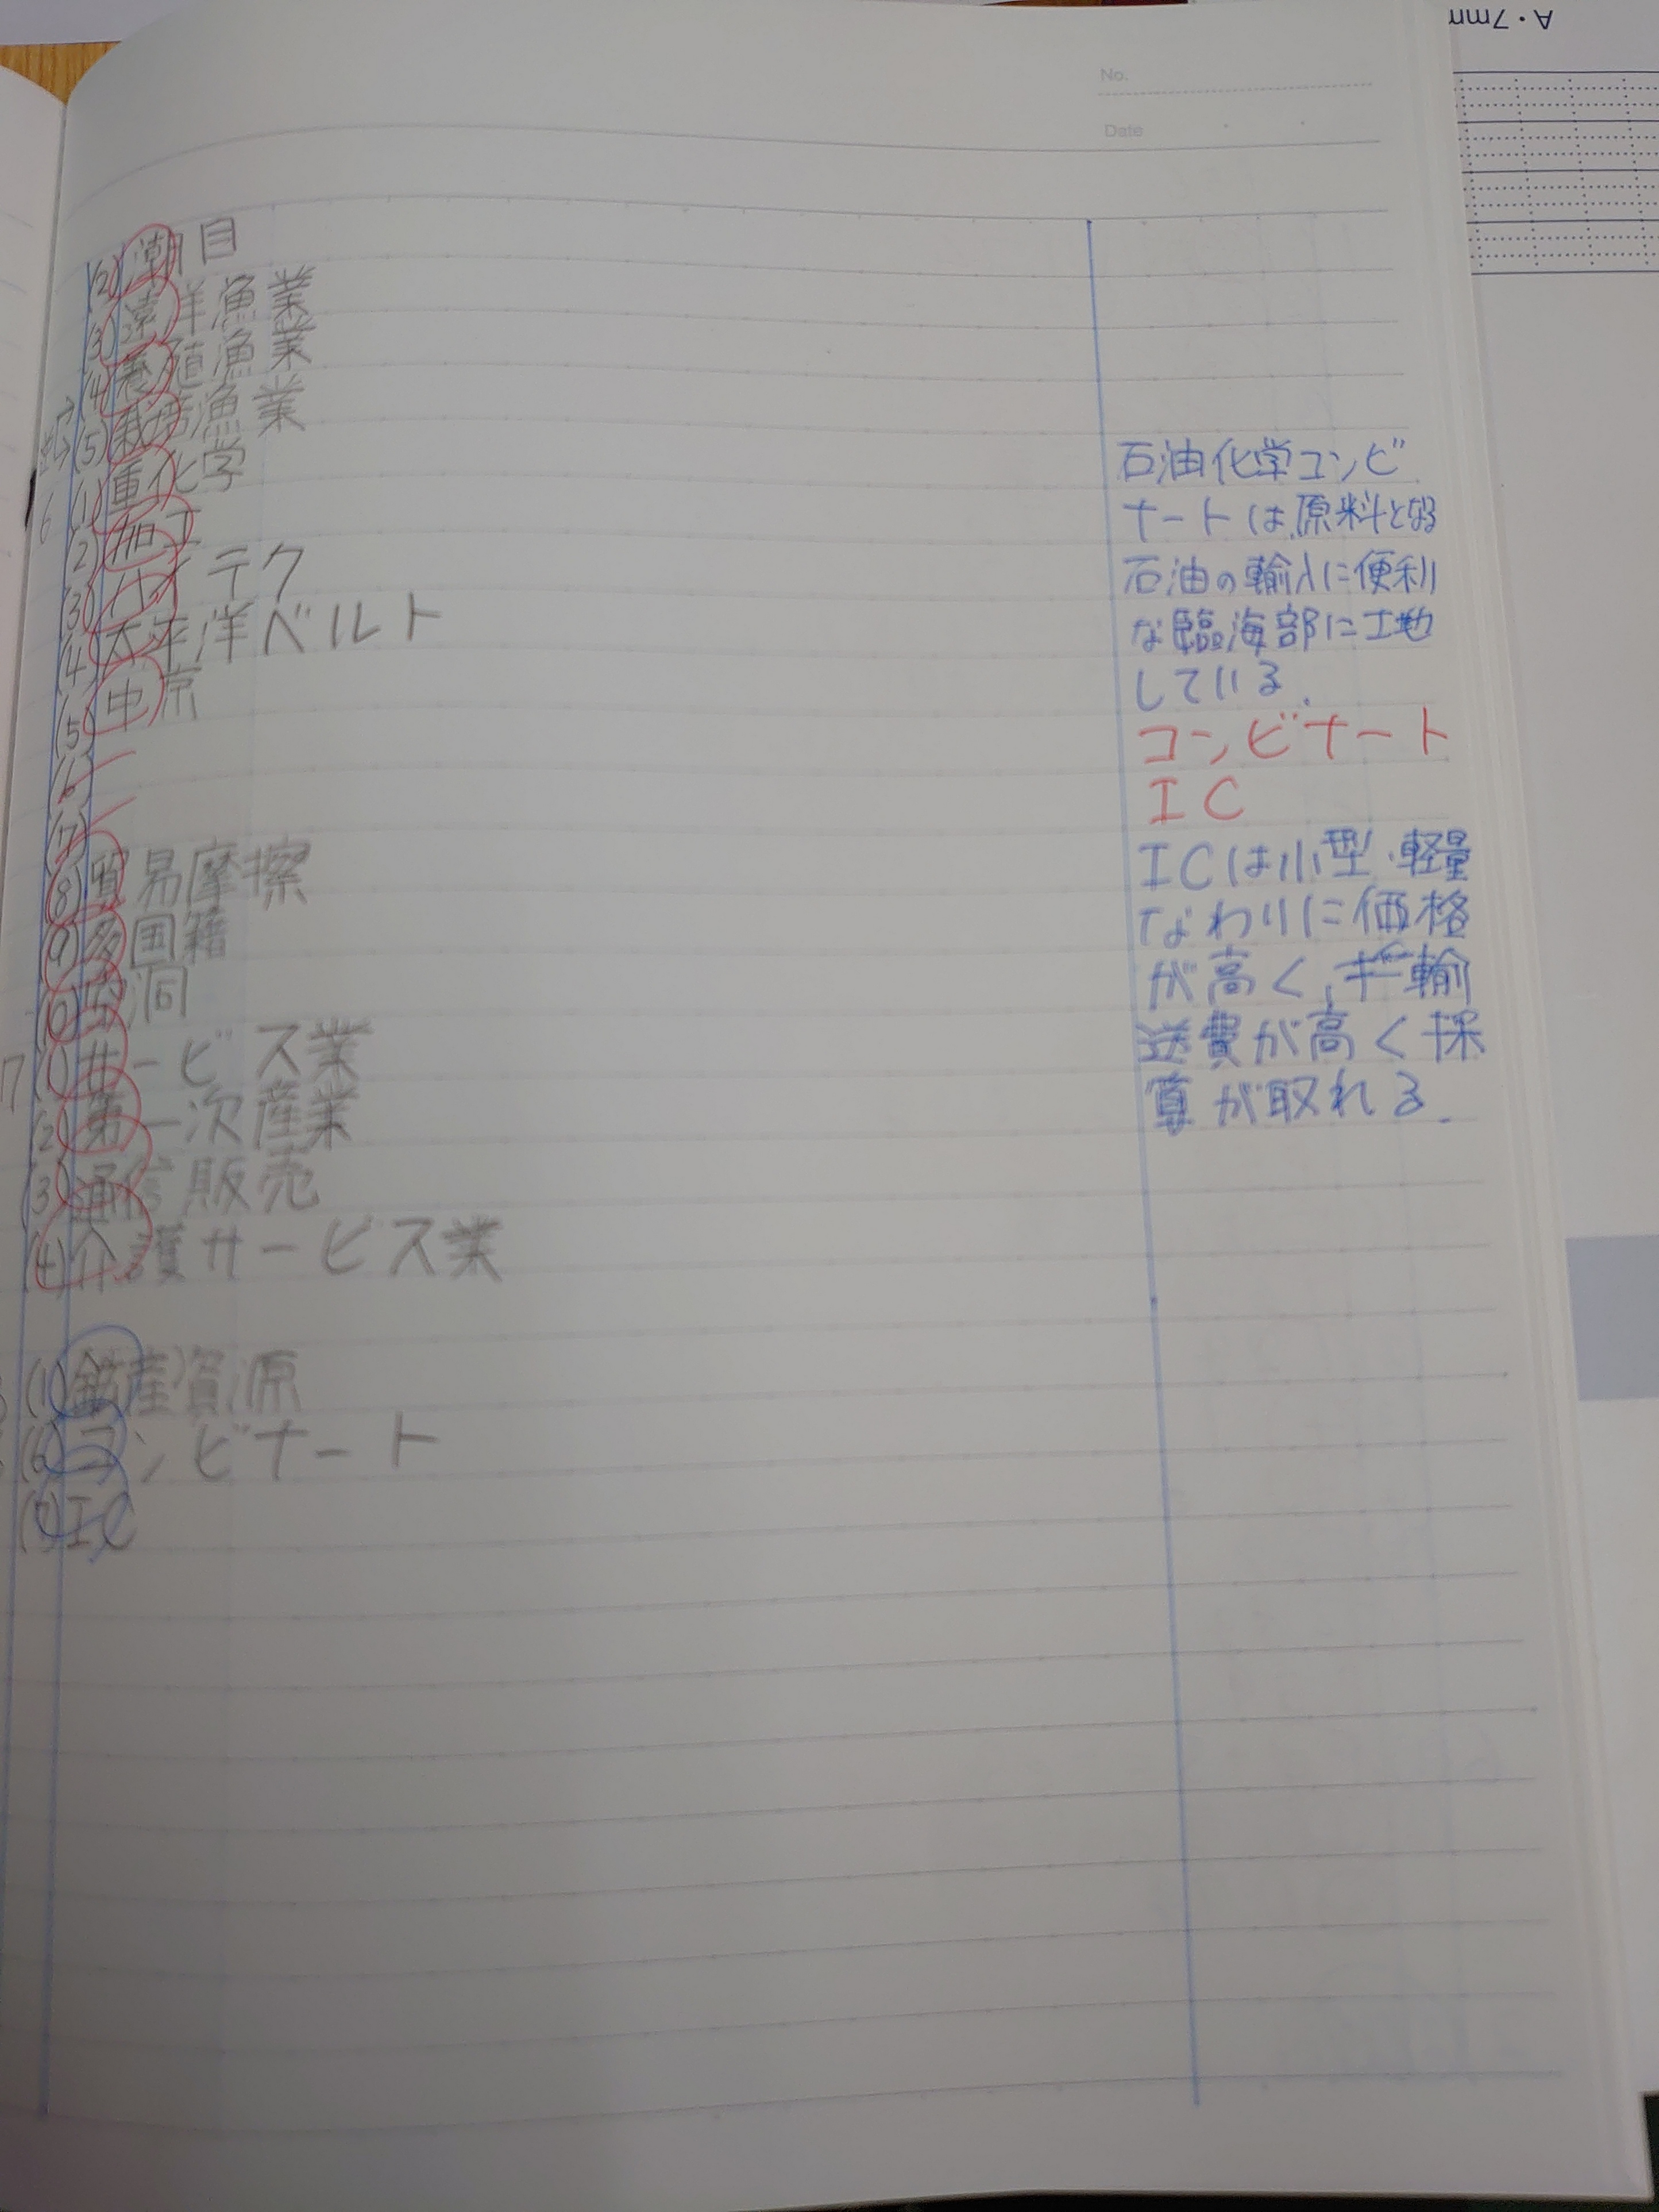 A・7mm
No.
Date
(2) 潮目
(3) 遠洋漁業
(4) 養殖漁業
(5) 栽培漁業
6 (1) 重化学
(2) 加工
(3) ハイテク
(4) 太平洋ベルト
(5) 中京
(6)
(7)
(8) 貿易摩擦
(9) 多国籍
(10) 空洞
7 (1) サービス業
(2) 第一次産業
(3) 通信販売
(4) 介護サービス業
(1) 鉱産資源
(6) コンビナート
(7) IC
石油化学コンビ
ナートは原料となる
石油の輸入に便利
な臨海部に土地
している.
コンビナート
IC
ICは小型・軽量
なわりに価格
が高く、輸
送費が高く採
算が取れる.